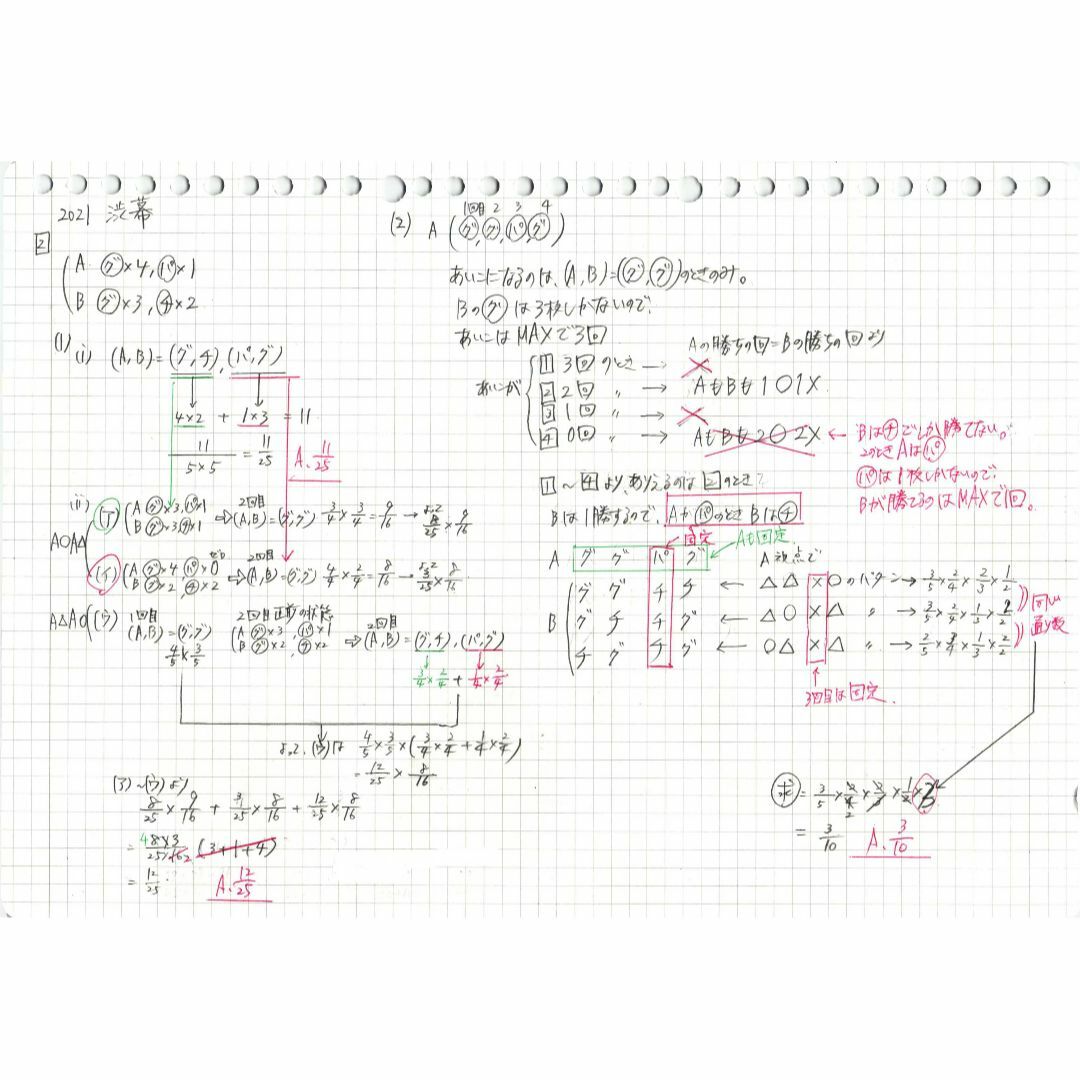 2021 渋幕
2
A グ×4, パ×1
B グ×3, チ×2
(1) (i) (A, B) = (グ, チ), (パ, グ)
4×2 + 1×3 = 11
11/5×5 = 11/25
A. 11/25
(ii)
AOA△
(ア) (A グ×3, パ×1
B グ×3, チ×1
2回目
⇨(A, B) = (グ, グ) 3/4 × 3/4 = 9/16 → よって 8/25 × 9/16
(イ) (A グ×4 パ×0
B グ×2, チ×2
2回目
⇨(A, B) = (グ, グ) 4/4 × 2/4 = 8/16 → よって 3/25 × 8/16
A△AO (ウ) 1回目
(A, B) = (グ, グ)
4/5 × 3/5
2回目直前の状態
(A グ×3, パ×1
B グ×2, チ×2
2回目
⇨(A, B) = (グ, チ), (パ, グ)
3/4 × 2/4 + 1/4 × 2/4
よって、(ウ)は 4/5 × 3/5 × (3/4 × 2/4 + 1/4 × 2/4)
= 12/25 × 8/16
(ア)~(ウ)より
8/25 × 9/16 + 3/25 × 8/16 + 12/25 × 8/16
= 8×3/25×16 (3+1+4)
= 12/25
A. 12/25
(2)
1回目 2 3 4
A (グ, グ, パ, グ)
あいこになるのは、(A, B) = (グ, グ)のときのみ。
Bのグは3枚しかないので、
あいこはMAXで3回
Aの勝ちの回=Bの勝ちの回より
あいこが
1 3回のとき → ×
2 2回 〃 → AもBも1○1×
3 1回 〃 → ×
4 0回 〃 → AもBも2○2×
← Bはチでしか勝てない。
このときAはパ
パは1枚しかないので、
Bが勝てるのはMAXで1回。
1~4より、ありえるのは2のとき
Bは1勝するので、Aがパのとき Bはチ
固定
Aも固定
A グ グ パ グ
A視点で
B
グ グ チ チ ← △△×○のパターン → 3/5 × 2/4 × 2/3 × 1/2
グ チ チ グ ← △○×△ 〃 → 3/5 × 2/4 × 1/3 × 2/2
チ グ チ グ ← ○△×△ 〃 → 2/5 × 3/4 × 1/3 × 2/2
同じ
通り数
3回目は固定
求 = 3/5 × 2/4 × 2/3 × 1/2 × 3
= 3/10
A. 3/10